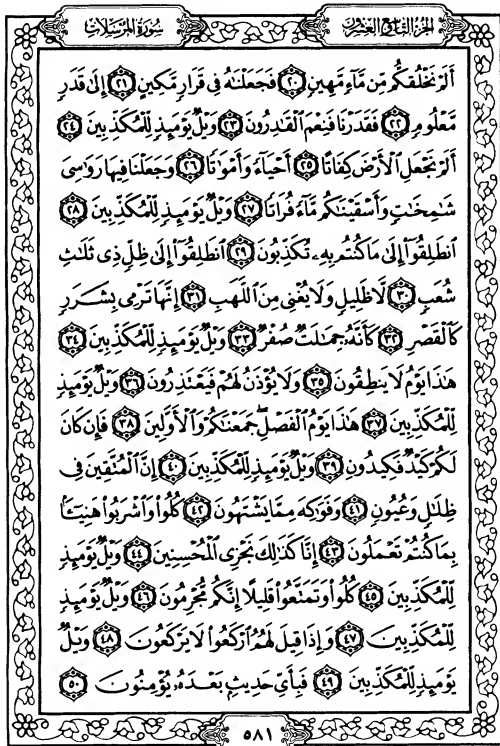 سُورَةُ المُرْسَلَات
الجزء التاسع والعشرون
أَلَمْ نَخْلُقكُّم مِّن مَّآءٍ مَّهِينٍ ٢٠ فَجَعَلْنَٰهُ فِى قَرَارٍ مَّكِينٍ ٢١ إِلَىٰ قَدَرٍ
مَّعْلُومٍ ٢٢ فَقَدَرْنَا فَنِعْمَ ٱلْقَٰدِرُونَ ٢٣ وَيْلٌ يَوْمَئِذٍ لِّلْمُكَذِّبِينَ ٢٤
أَلَمْ نَجْعَلِ ٱلْأَرْضَ كِفَاتًا ٢٥ أَحْيَآءً وَأَمْوَٰتًا ٢٦ وَجَعَلْنَا فِيهَا رَوَٰسِىَ
شَٰمِخَٰتٍ وَأَسْقَيْنَٰكُم مَّآءً فُرَاتًا ٢٧ وَيْلٌ يَوْمَئِذٍ لِّلْمُكَذِّبِينَ ٢٨
ٱنطَلِقُوٓا۟ إِلَىٰ مَا كُنتُم بِهِۦ تُكَذِّبُونَ ٢٩ ٱنطَلِقُوٓا۟ إِلَىٰ ظِلٍّ ذِى ثَلَٰثِ
شُعَبٍ ٣٠ لَّا ظَلِيلٍ وَلَا يُغْنِى مِنَ ٱللَّهَبِ ٣١ إِنَّهَا تَرْمِى بِشَرَرٍ
كَٱلْقَصْرِ ٣٢ كَأَنَّهُۥ جِمَٰلَتٌ صُفْرٌ ٣٣ وَيْلٌ يَوْمَئِذٍ لِّلْمُكَذِّبِينَ ٣٤
هَٰذَا يَوْمُ لَا يَنطِقُونَ ٣٥ وَلَا يُؤْذَنُ لَهُمْ فَيَعْتَذِرُونَ ٣٦ وَيْلٌ يَوْمَئِذٍ
لِّلْمُكَذِّبِينَ ٣٧ هَٰذَا يَوْمُ ٱلْفَصْلِ ۖ جَمَعْنَٰكُمْ وَٱلْأَوَّلِينَ ٣٨ فَإِن كَانَ
لَكُمْ كَيْدٌ فَكِيدُونِ ٣٩ وَيْلٌ يَوْمَئِذٍ لِّلْمُكَذِّبِينَ ٤٠ إِنَّ ٱلْمُتَّقِينَ فِى
ظِلَٰلٍ وَعُيُونٍ ٤١ وَفَوَٰكِهَ مِمَّا يَشْتَهُونَ ٤٢ كُلُوا۟ وَٱشْرَبُوا۟ هَنِيٓـًٔۢا
بِمَا كُنتُمْ تَعْمَلُونَ ٤٣ إِنَّا كَذَٰلِكَ نَجْزِى ٱلْمُحْسِنِينَ ٤٤ وَيْلٌ يَوْمَئِذٍ
لِّلْمُكَذِّبِينَ ٤٥ كُلُوا۟ وَتَمَتَّعُوا۟ قَلِيلًا إِنَّكُم مُّجْرِمُونَ ٤٦ وَيْلٌ يَوْمَئِذٍ
لِّلْمُكَذِّبِينَ ٤٧ وَإِذَا قِيلَ لَهُمُ ٱرْكَعُوا۟ لَا يَرْكَعُونَ ٤٨ وَيْلٌ
يَوْمَئِذٍ لِّلْمُكَذِّبِينَ ٤٩ فَبِأَىِّ حَدِيثٍۭ بَعْدَهُۥ يُؤْمِنُونَ ٥٠
٥٨١